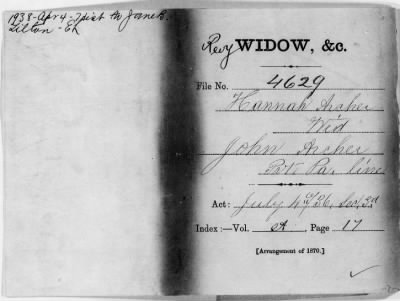 1938-Apr 4- Hist to Jane B.
Tilton - Ek
Rev WIDOW, &c.
File No. 4629
Hannah Archer
Wid
John Archer
Pvt Pa. line
Act: July 4th/36, Sec. 3d
Index:—Vol. A, Page 17
[Arrangement of 1870.]